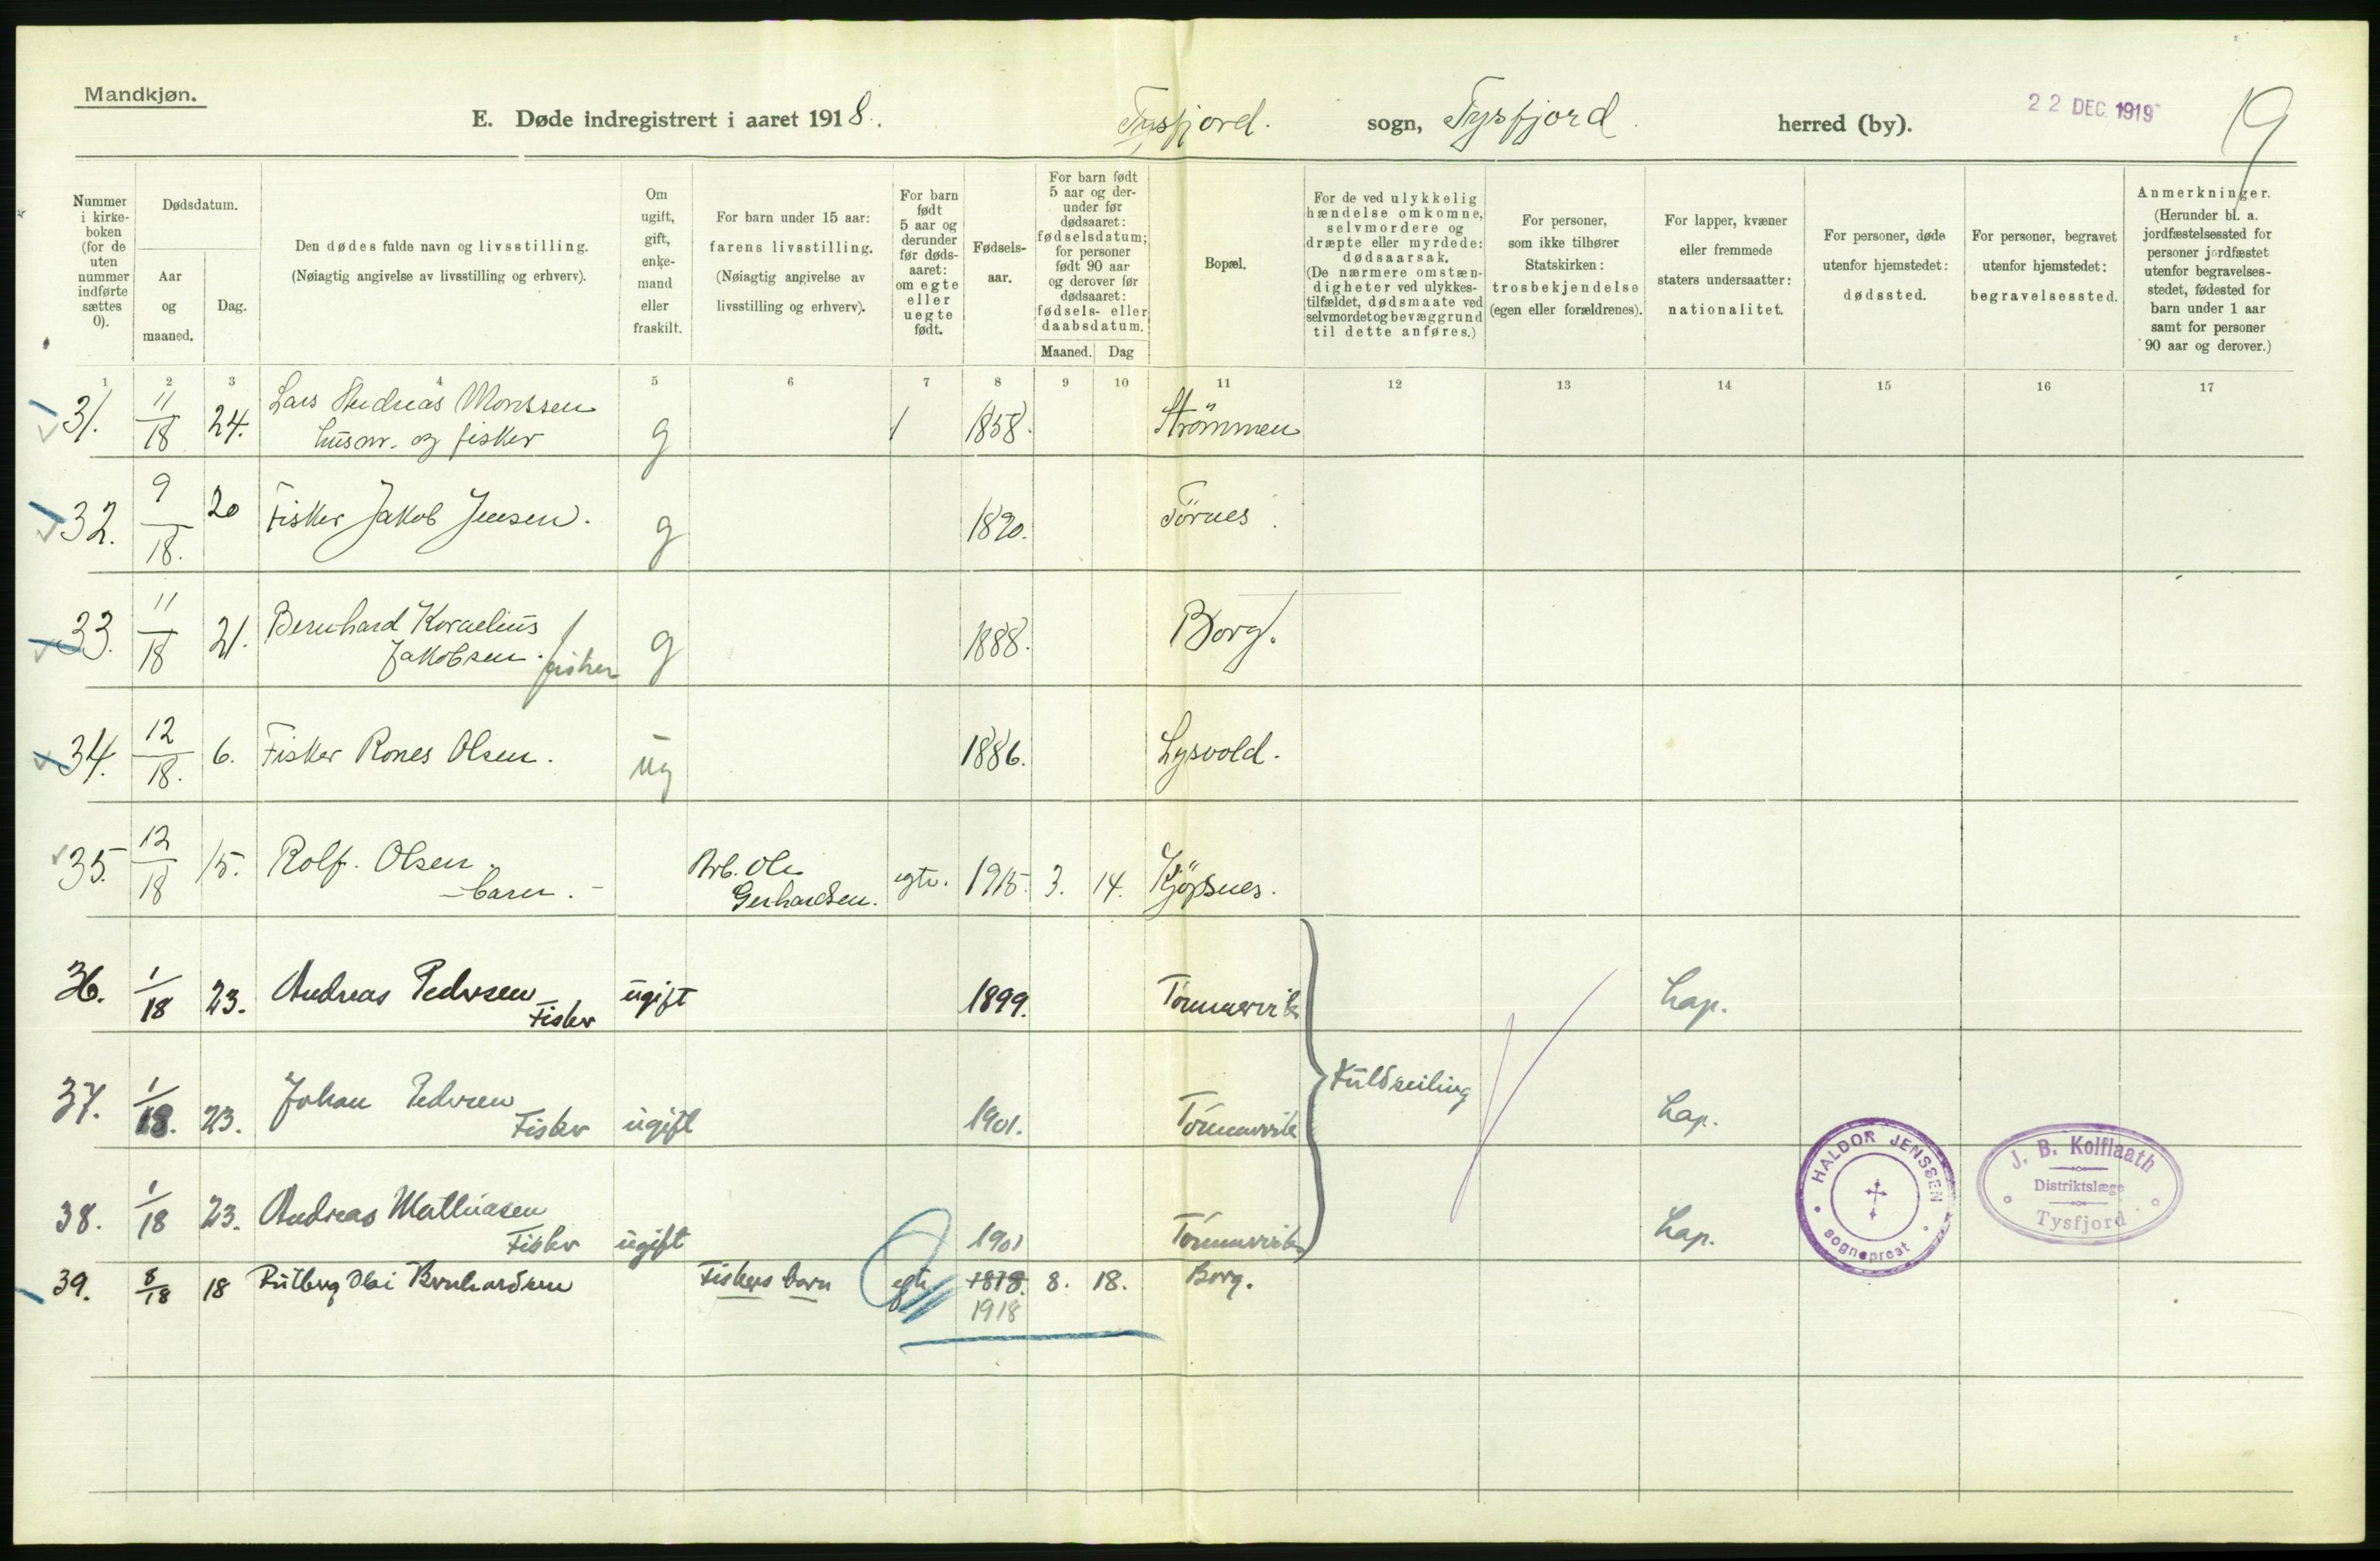 Mandkjøn.
E. Døde indregistrert i aaret 1918. Tysfjord. sogn, Tysfjord. herred (by).
22 DEC. 1919
19
Nummer i kirke-boken (for de uten nummer indførte sættes 0).
Dødsdatum.
Aar og maaned.
Dag.
Den dødes fulde navn og livsstilling.
(Nøiagtig angivelse av livsstilling og erhverv).
Om ugift, gift, enke-mand eller fraskilt.
For barn under 15 aar: farens livsstilling. (Nøiagtig angivelse av livsstilling og erhverv).
For barn født 5 aar og derunder før døds-aaret: om egte eller uegte født.
Fødsels-aar.
For barn født 5 aar og der-under før dødsaaret: fødselsdatum; for personer født 90 aar og derover før dødsaaret: fødsels- eller daabsdatum.
Maaned. Dag
Bopæl.
For de ved ulykkelig hændelse omkomne, selvmordere og dræpte eller myrdede: dødsaarsak. (De nærmere omstæn-digheter ved ulykkes-tilfældet, dødsmaate ved selvmordet og bevæggrund til dette anføres.)
For personer, som ikke tilhører Statskirken: trosbekjendelse (egen eller forældrenes).
For lapper, kvæner eller fremmede staters undersaatter: nationalitet.
For personer, døde utenfor hjemstedet: dødssted.
For personer, begravet utenfor hjemstedet: begravelsessted.
Anmerkninger. (Herunder bl. a. jordfæstelsessted for personer jordfæstet utenfor begravelses-stedet, fødested for barn under 1 aar samt for personer 90 aar og derover.)
1 2 3 4 5 6 7 8 9 10 11 12 13 14 15 16 17
31. 11/18 24. Lars Andreas Monssen g 1 1858. Strömmen
husm. og fisker
32. 9/18. 20 Fisker Jakob Jensen. g 1890. Törnes.
33. 11/18 21. Bernhard Kornelius g 1888. Borg.
Jakobsen. fisker
34. 12/18. 6. Fisker Rones Olsen. ug 1886. Lysvold.
35. 12/18 15. Rolf Olsen Arb. Ole egte. 1915. 3. 14. Kjöpsnes.
- barn. - Gerhardsen.
36. 1/18 23. Andreas Pedersen ugift 1899. Lap.
Fisker
37. 1/18. 23. Johan Pedersen ugift 1901. Kuldseiling Lap.
Fisker
38. 1/18 23. Andreas Mathiasen ugift 1901 Lap.
Fisker
39. 8/18 18 Olai Bernhardsen Fiskers barn egte 1878. 8. 18. Borg.
1918
HALDOR JENSSEN
sogneprest
J. B. Kolflaath
Distriktslæge
Tysfjord